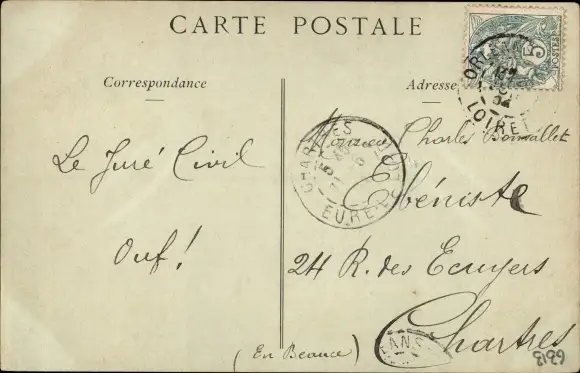 CARTE POSTALE
Correspondance
Adresse
5
POSTES
ORLEANS
LOIRET
CHARTRES
EURE-ET-L
Monsieur Charles Bonvallet
Le Juré Civil
Ebéniste
Ouf!
24 R. des Ecuyers
Chartres
(En Beauce)
ANS